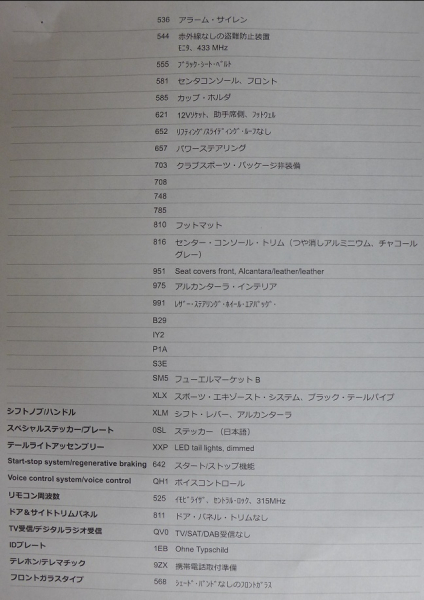 536 アラーム・サイレン
544 赤外線なしの盗難防止装置
ﾓﾆﾀ、433 MHz
555 ﾌﾞﾗｯｸ･ｼｰﾄ･ﾍﾞﾙﾄ
581 センタコンソール、フロント
585 カップ・ホルダ
621 12Vソケット、助手席側、ﾌｯﾄｳｪﾙ
652 ﾘﾌﾃｨﾝｸﾞ/ｽﾗｲﾃﾞｨﾝｸﾞ･ﾙｰﾌなし
657 パワーステアリング
703 クラブスポーツ・パッケージ非装備
708
748
785
810 フットマット
816 センター・コンソール・トリム（つや消しアルミニウム、チャコール
グレー）
951 Seat covers front, Alcantara/leather/leather
975 アルカンターラ・インテリア
991 ﾚｻﾞｰ･ｽﾃｱﾘﾝｸﾞ･ﾎｲｰﾙ･ｴｱﾊﾞｯｸﾞ･
B29
IY2
P1A
S3E
SM5 フューエルマーケット B
XLX スポーツ・エキゾースト・システム、ブラック・テールパイプ
シフトノブ/ハンドル XLM シフト・レバー、アルカンターラ
スペシャルステッカー/プレート 0SL ステッカー （日本語）
テールライトアッセンブリー XXP LED tail lights, dimmed
Start-stop system/regenerative braking 642 スタート/ストップ機能
Voice control system/voice control QH1 ボイスコントロール
リモコン周波数 525 ｲﾓﾋﾞﾗｲｻﾞ、ｾﾝﾄﾗﾙ･ﾛｯｸ、315MHz
ドア＆サイドトリムパネル 811 ドア・パネル・トリムなし
TV受信/デジタルラジオ受信 QV0 TV/SAT/DAB受信なし
IDプレート 1EB Ohne Typschild
テレホン/テレマチック 9ZX 携帯電話取付準備
フロントガラスタイプ 568 ｼｪｰﾄﾞ･ﾊﾞﾝﾄﾞなしのﾌﾛﾝﾄｶﾞﾗｽ